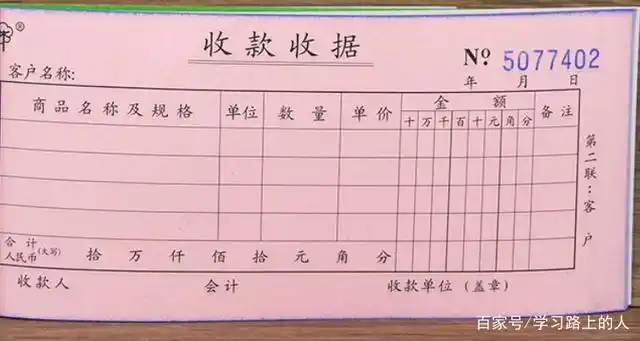 ®
收款收据
№ 5077402
客户名称:
年 月 日
商品名称及规格 单位 数量 单价 金额 备注
十 万 千 百 十 元 角 分
第二联:客户
合计
人民币(大写) 拾 万 仟 佰 拾 元 角 分
收款人 会计 收款单位(盖章)
百家号/学习路上的人